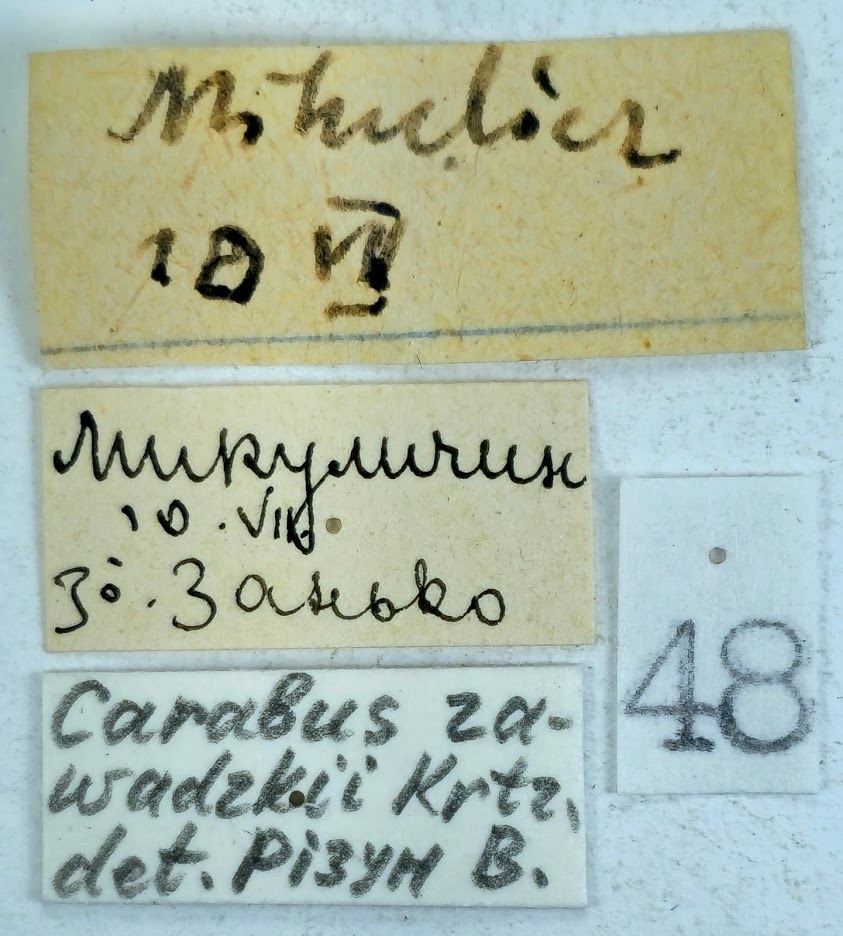 10 VII
Микуличин
10. VII.
Зб. Занько
Carabus za-
wadzkii Krtz.
det. Різун В.
48